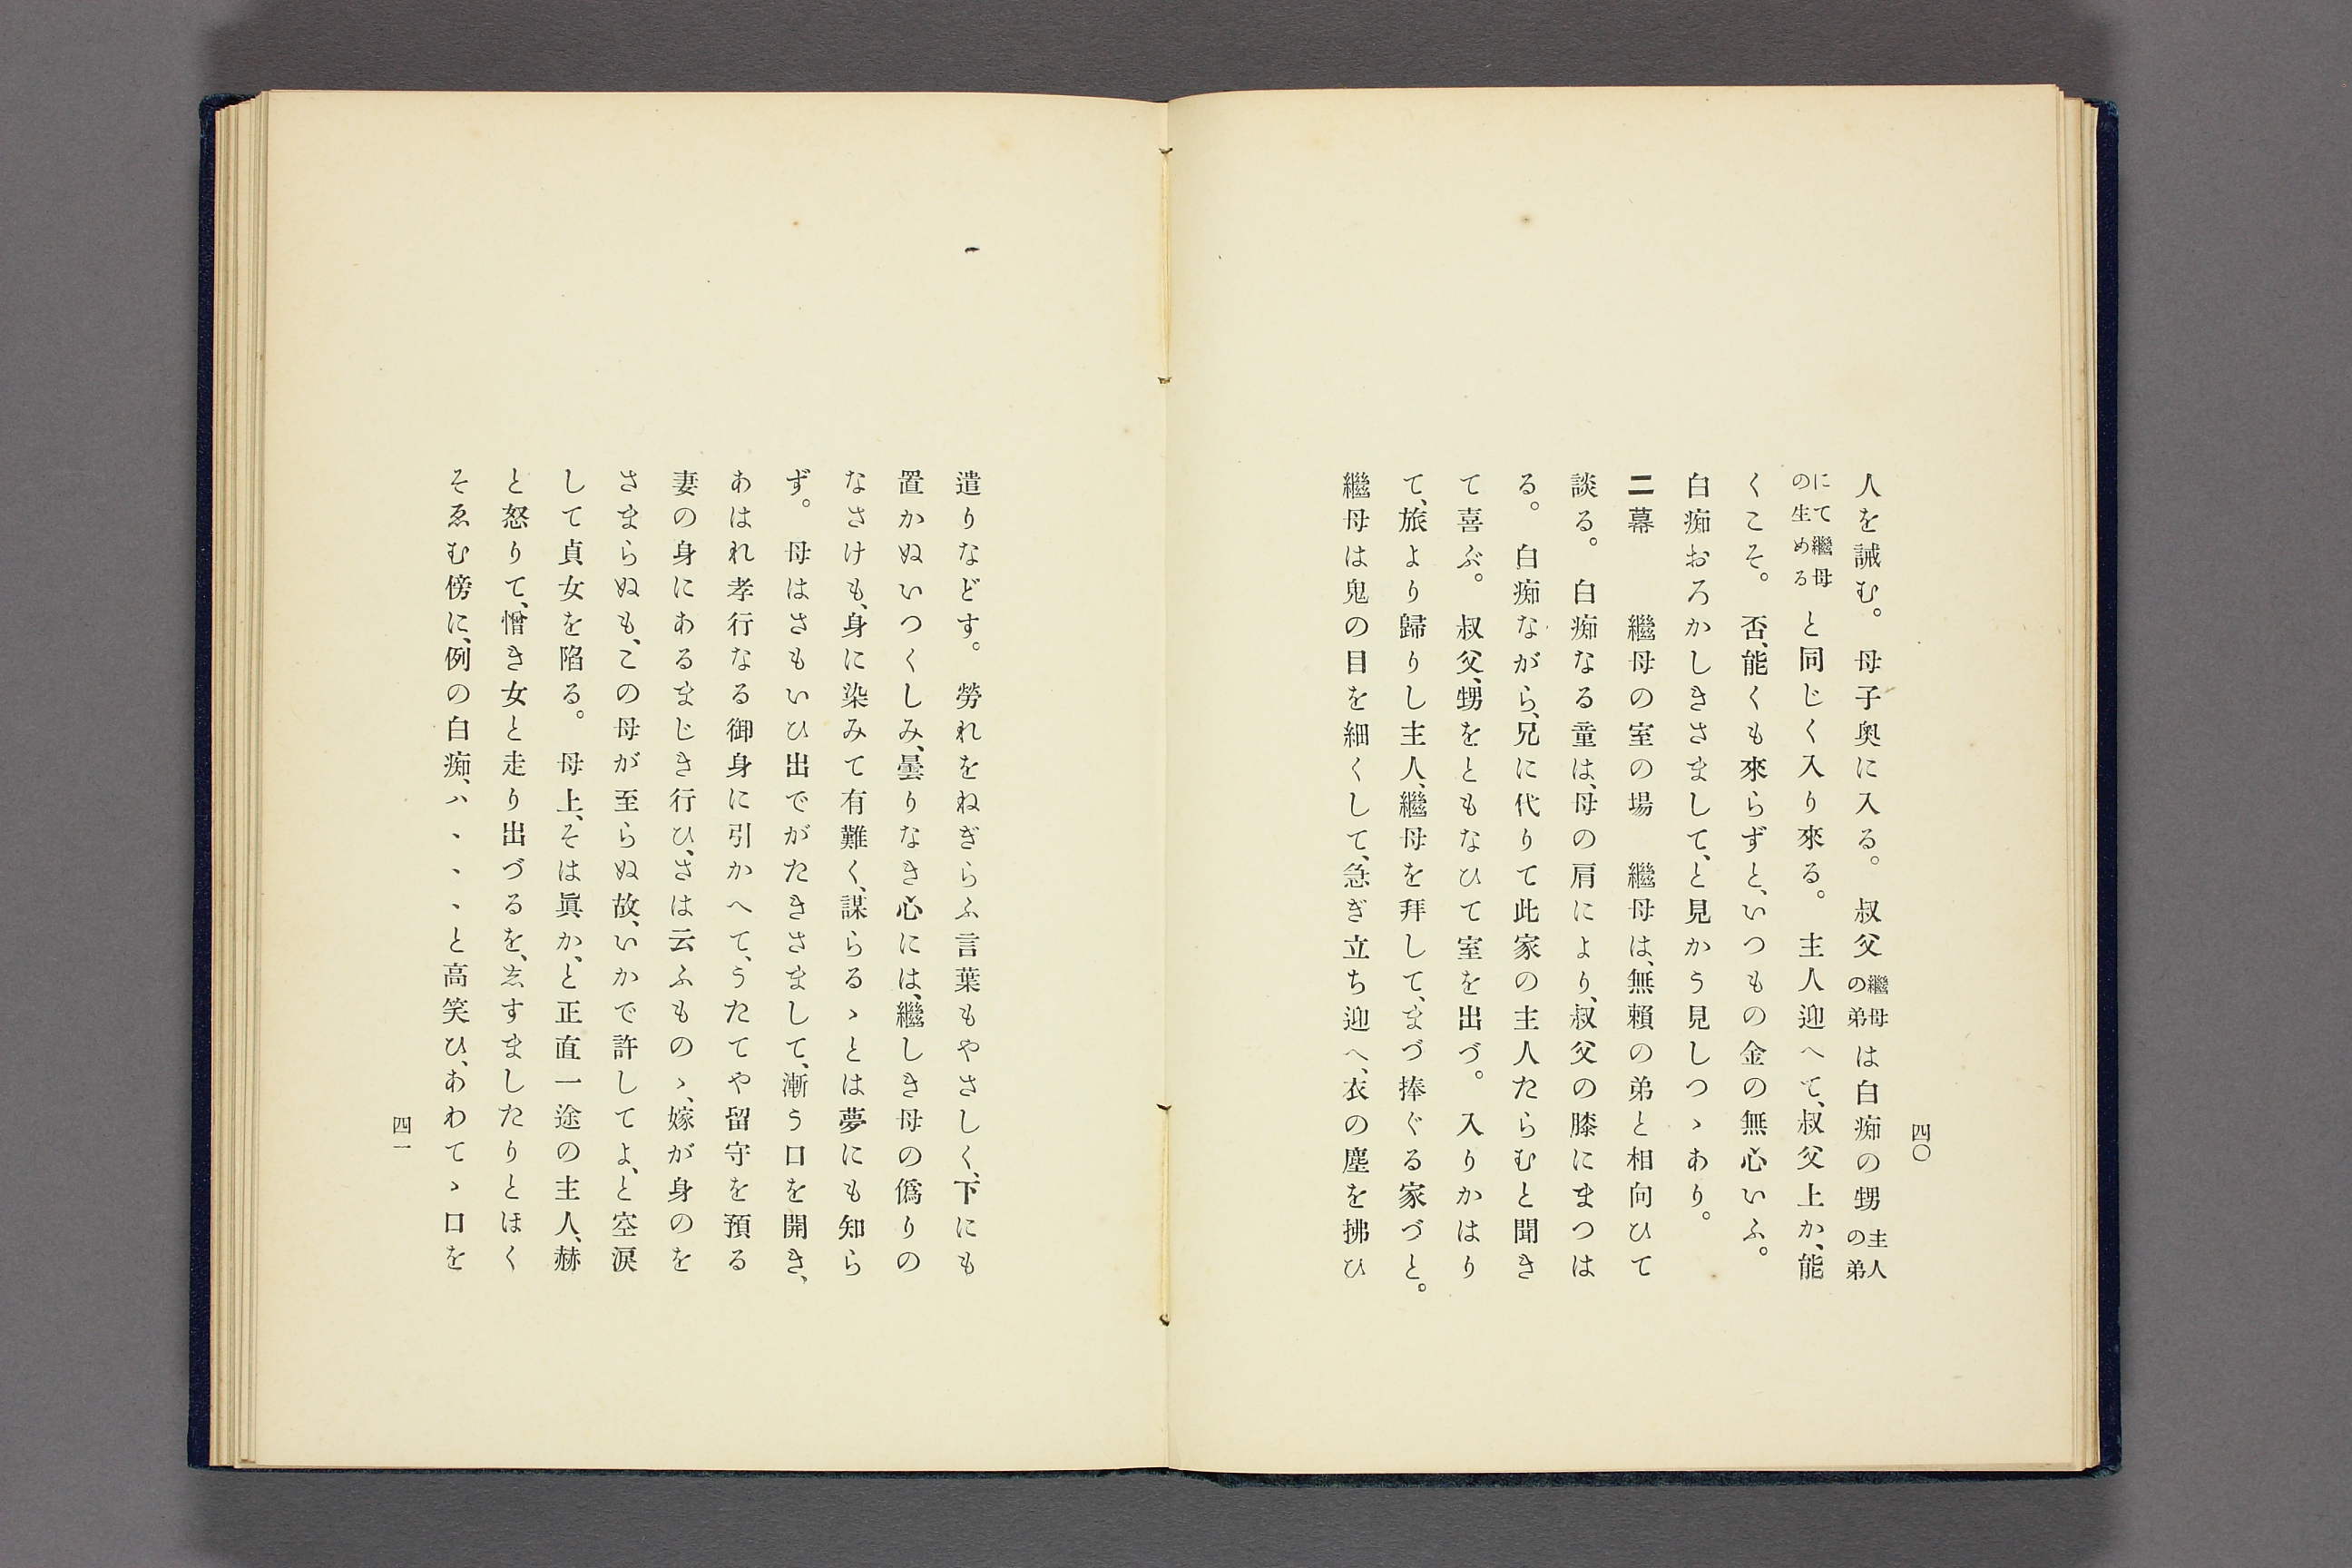 四〇
人を誡む。　母子奥に入る。　叔父繼母の弟は白痴の甥主人の弟
にて繼母の生めると同じく入り來る。　主人迎へて、叔父上か、能
くこそ。　否、能くも來らずと、いつもの金の無心いふ。
白痴おろかしきさまして、と見かう見しつゝあり。
二幕　　繼母の室の場　繼母は、無賴の弟と相向ひて
談る。　白痴なる童は、母の肩により、叔父の膝にまつは
る。　白痴ながら、兄に代りて此家の主人たらむと聞き
て喜ぶ。　叔父、甥をともなひて室を出づ。　入りかはり
て、旅より歸りし主人、繼母を拜して、まづ捧ぐる家づと。
繼母は鬼の目を細くして、急ぎ立ち迎へ、衣の塵を拂ひ
遣りなどす。　勞れをねぎらふ言葉もやさしく、下にも
置かぬいつくしみ、曇りなき心には、繼しき母の僞りの
なさけも、身に染みて有難く、謀らるゝとは夢にも知ら
ず。　母はさもいひ出でがたきさまして、漸う口を開き、
あはれ孝行なる御身に引かへて、うたてや留守を預る
妻の身にあるまじき行ひ、さは云ふものゝ、嫁が身のを
さまらぬも、この母が至らぬ故、いかで許してよ、と空涙
して貞女を陷る。　母上、そは眞か、と正直一途の主人、赫
と怒りて、憎き女と走り出づるを、ゑすましたりとほく
そゑむ傍に、例の白痴、ハ、、、と高笑ひ、あわてゝ口を
四一